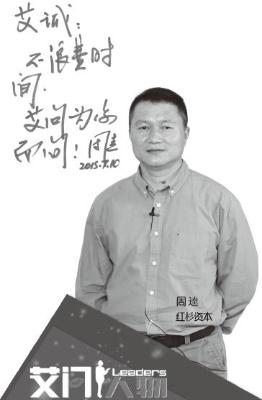 艾诚：
不浪费时
间.
艾问为你
而问！周逵
2015.7.10
周逵
红杉资本
艾问Leaders
人物